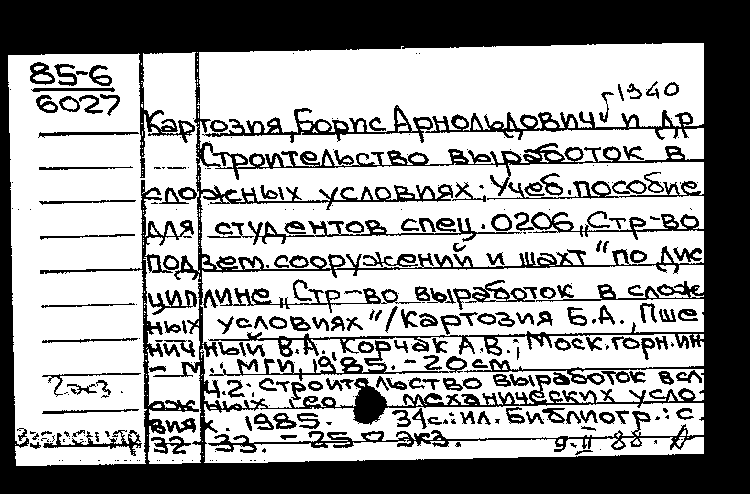 85-6
6027
1940
Картозия, Борис Арнольдович и др
Строительство выработок в
сложных условиях: Учеб. пособие
для студентов спец. 0206 „Стр-во
подзем. сооружений и шахт" по дис
циплине „Стр-во выработок в слож
ных условиях"/Картозия Б.А., Пше-
ничный В.А., Корчак А.В.; Моск. горн. ин-
- М.: МГИ, 1985. - 20см.
2 экз.
Ч.2: Строительство выработок в сл
ожных гео механических усло
виях. 1985. 34с.: ил. Библиогр.: с.
32-33. - 250 экз.
9.II 88.